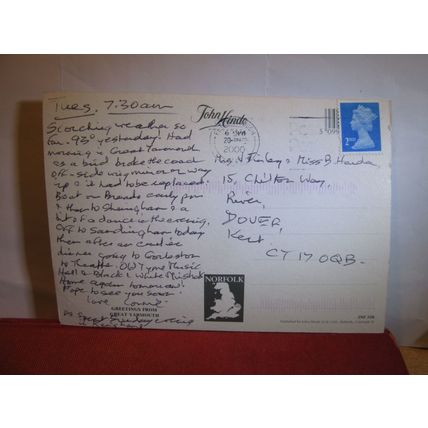 Tues. 7.30am
Scorching weather so
far. 93° yesterday. Had
morning in Great Yarmouth
as a bird broke the coach
off-side wing mirror on way
up & it had to be replaced.
Boat on Broads early pm
& then to Sheringham & a
bit of a dance in the evening.
Off to Sandringham today
then after an
dinner going to Gorleston
to Theatre. Old Tyme Music
Hall & Black & White Minstrels
Home again tomorrow!
Hope to see you soon.
Love
PS. Great Sunday evening
John Hinde
6 PM
20
2000
2ND
5 099
& Miss B.
15, Chilton Way,
River,
DOVER,
Kent.
CT17 0QB.
NORFOLK
GREETINGS FROM
GREAT YARMOUTH